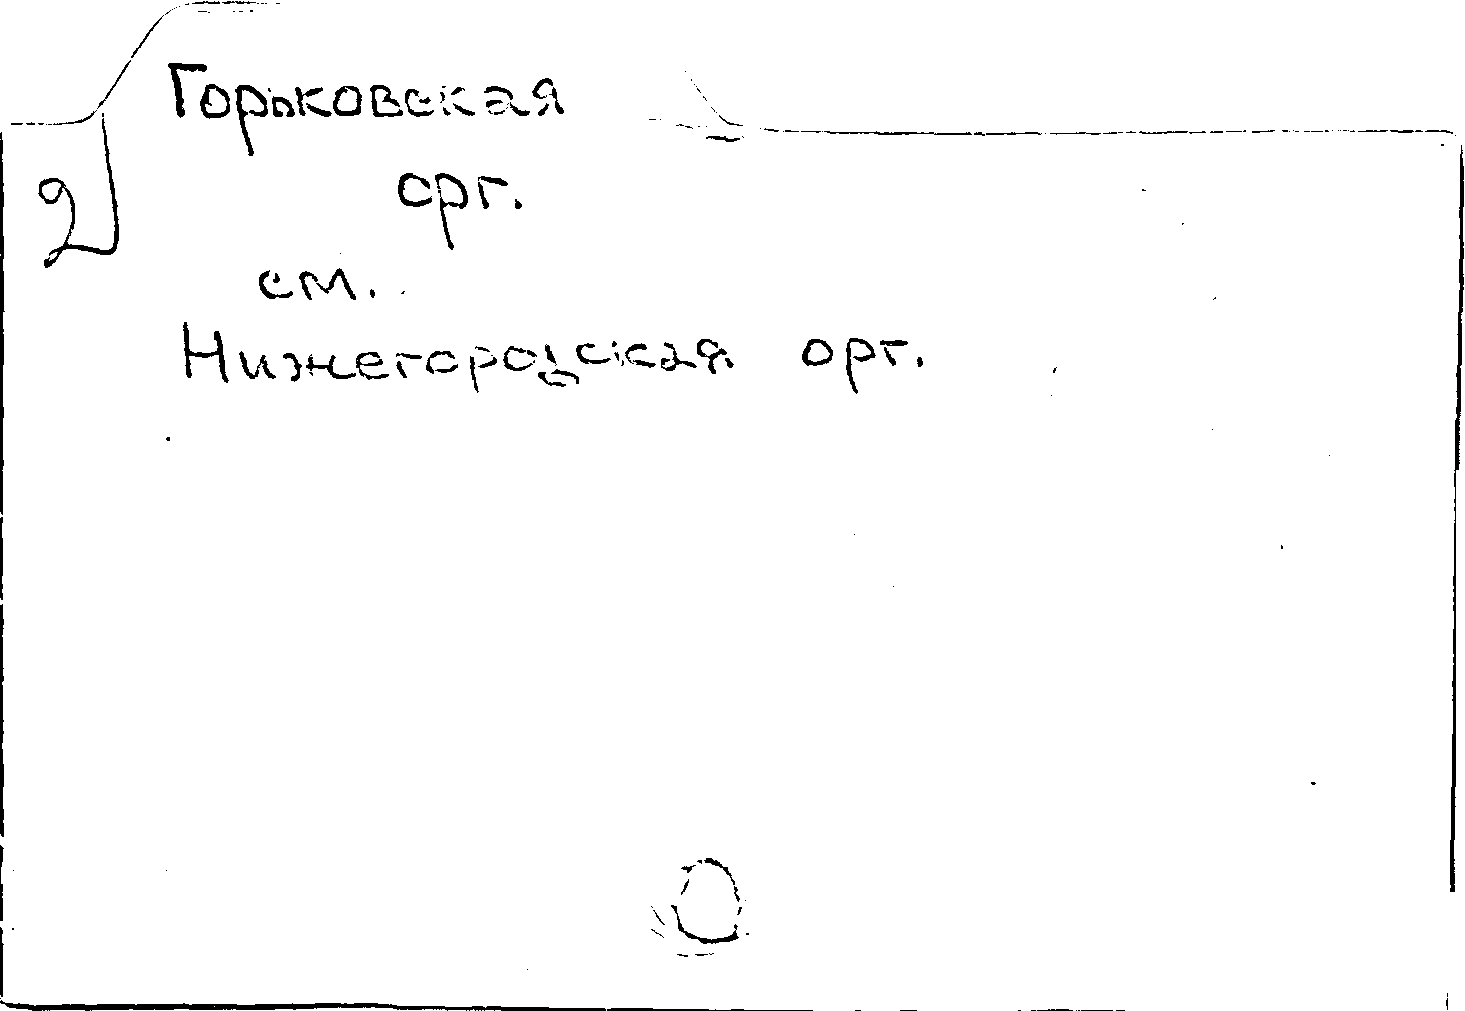 Горьковская
2 орг.
см.
Нижегородская орг.